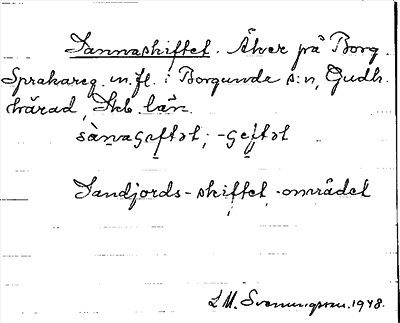 Sannaskiftet. Åker på Borg.
Sprakareg. m. fl. i Borgunda s:n, Gudh.
härad, Skb. län.
sànaʃeftət, -ʃeftət
Sandjords-skiftet, -området
L. M. Svenungsson. 1948.